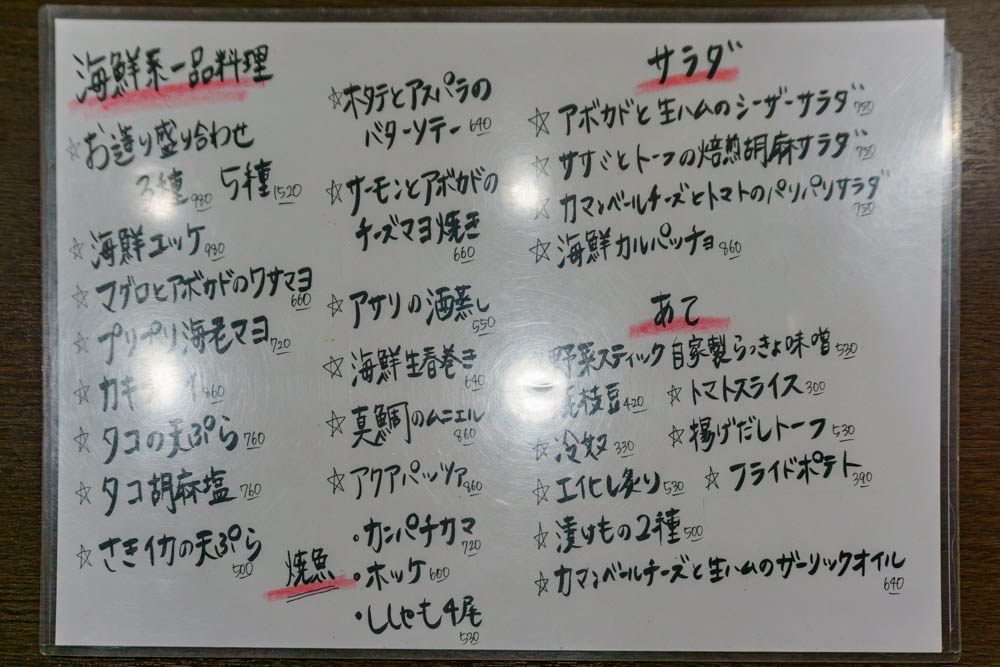 海鮮系一品料理
☆お造り盛り合わせ
3種980 5種1520
☆海鮮ユッケ980
☆マグロとアボカドのワサマヨ660
☆プリプリ海老マヨ720
☆カキ 860
☆タコの天ぷら760
☆タコ胡麻塩760
☆さきイカの天ぷら500
☆ホタテとアスパラの
バターソテー640
☆サーモンとアボカドの
チーズマヨ焼き660
☆アサリの酒蒸し550
☆海鮮生春巻き640
☆真鯛のムニエル860
☆アクアパッツァ860
焼魚
・カンパチカマ720
・ホッケ600
・ししゃも4尾530
サラダ
☆アボカドと生ハムのシーザーサラダ750
☆ササミとトーフの焙煎胡麻サラダ750
☆カマンベールチーズとトマトのパリパリサラダ750
☆海鮮カルパッチョ860
あて
野菜スティック自家製らっきょ味噌530
枝豆420 ☆トマトスライス300
☆冷奴330 ☆揚げだしトーフ530
☆エイヒレ炙り530 ☆フライドポテト390
☆漬けもの2種500
☆カマンベールチーズと生ハムのガーリックオイル640